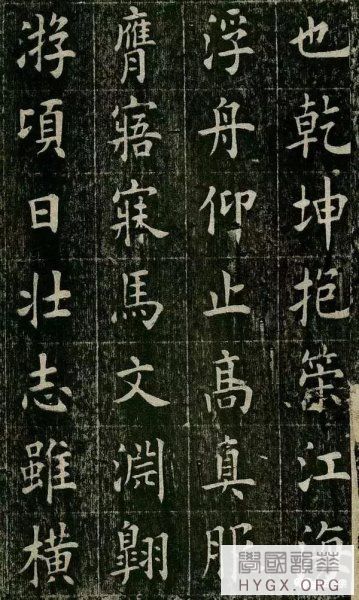 也乾坤抱筞江海
浮舟仰止髙真服
膺寤寐馬文淵翺
游頃日壯志雖橫
華韻國學
HYGX.ORG